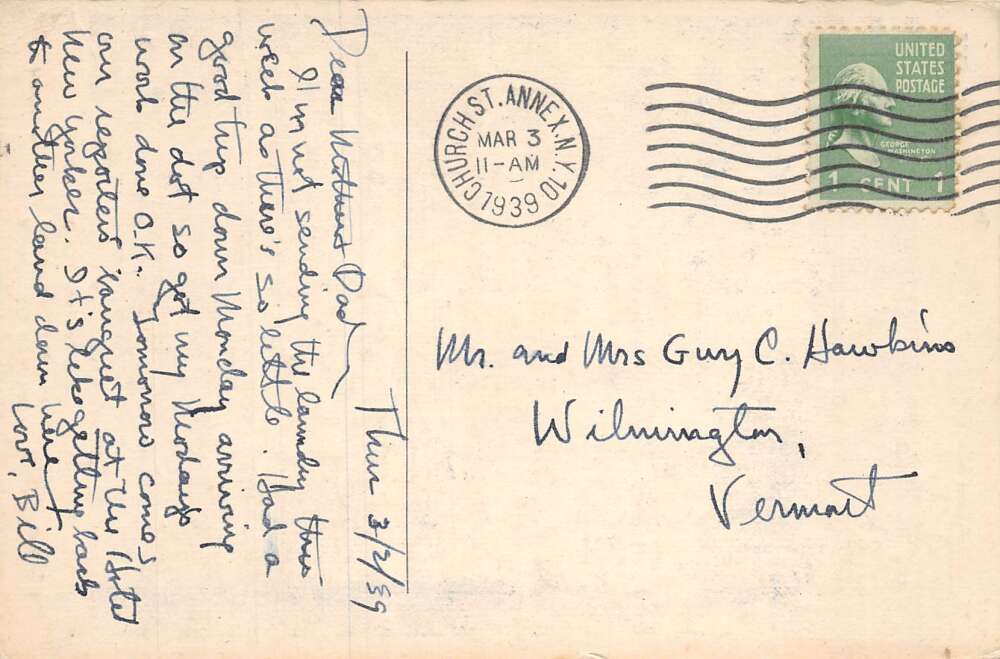 Thur 3/2/39
Dear Mother + Dad,
I'm not sending the laundry this
week as there's so little. Had a
good trip down Monday arriving
on the dot so got my Monday's
work done O.K. Tomorrow comes
our reporters' banquet at the Hotel
New Yorker. It's like getting back
to another land down here.
Love, Bill
CHURCH ST. ANNEX. N.Y. 10
MAR 3
11-AM
1939
UNITED
STATES
POSTAGE
GEORGE
WASHINGTON
1 CENT 1
Mr. and Mrs Guy C. Hawkins
Wilmington,
Vermont